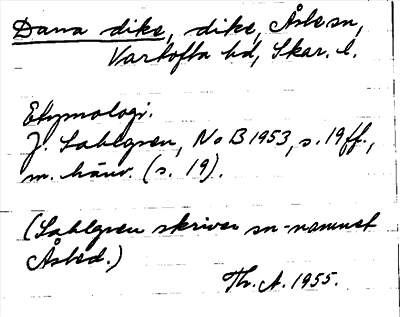 Dana dike, dike, Åsle sn,
Vartofta hd, Skar. l.
Etymologi.
J. Sahlgren, NoB 1953, s. 19 ff.,
m. hänv. (s. 19).
(Sahlgren skriver sn-namnet
Åsled.)
Th. A. 1955.